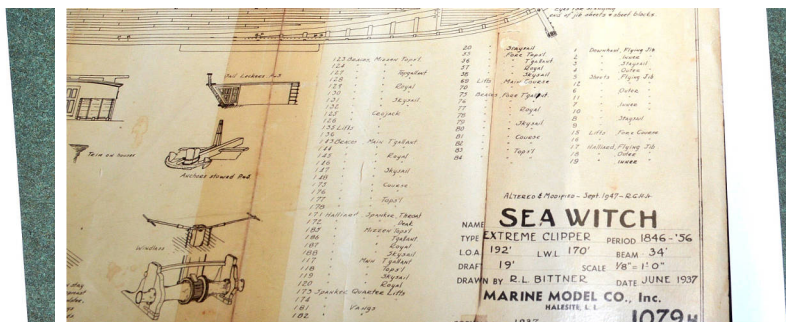 end of jib sheets & sheet blocks
123 Braces Mizzen Tops'l
124 " " "
127 " " Tgallant
128 " " "
129 " " Royal
130 " " "
131 " " Skysail
132 " " "
125 " Crojack
126 " "
135 Lifts "
136 " "
143 Braces Main T'gallant
144 " " "
145 " " Royal
146 " " "
147 " " Skysail
148 " " "
175 " " Course
176 " " "
177 " " Tops'l
178 " " "
171 Halliard, Spanker, Throat
172 " " Peak
185 " Mizzen Tops'l
186 " " T'gallant
187 " " Royal
188 " " Skysail
117 " Main T'gallant
118 " " Tops'l
119 " " Skysail
120 " " Royal
173 Spanker Quarter Lifts
174 " " "
181 " Vangs
182 " "
20 " Staysail
35 " Fore Tops'l
36 " " T'gallant
37 " " Royal
38 " " Skysail
69 Lifts Main Course
70 " " "
75 Braces Fore T'gallant
76 " " "
77 " " Royal
78 " " "
79 " " Skysail
80 " " "
81 " " Course
82 " " "
83 " " Tops'l
84 " " "
1 Downhaul, Flying Jib
2 " Inner
3 " Staysail
4 " Outer
5 Sheets Flying Jib
12 " " "
6 " Outer
11 " "
7 " Inner
10 " "
8 " Staysail
9 " "
15 Lifts Fore Course
16 " " "
17 Halliard, Flying Jib
18 " Outer
19 " Inner
Pail Lockers P&S
Anchors stowed P&S
Windlass
Altered & Modified - Sept. 1947 - R.G.H.S.
NAME SEA WITCH
TYPE EXTREME CLIPPER PERIOD 1846-'56
L.O.A. 192' L.W.L. 170' BEAM 34'
DRAFT 19' SCALE 1/8" = 1'0"
DRAWN BY R.L. BITTNER DATE JUNE 1937
MARINE MODEL CO., Inc.
HALESITE, L. I.
1937 1079H